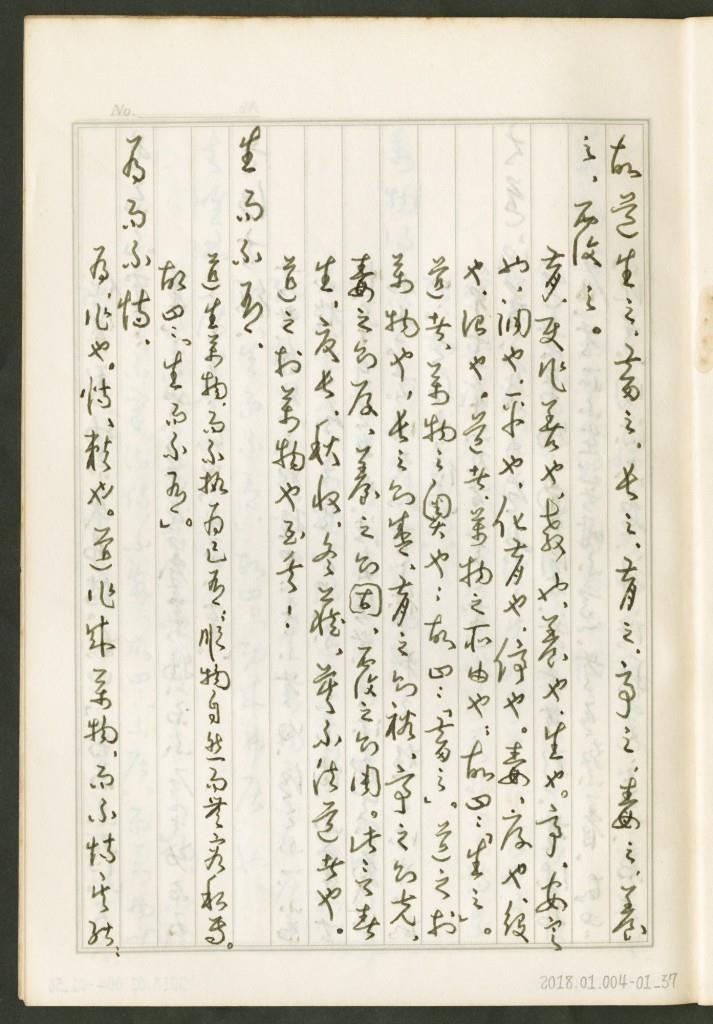 No.
故道生之、畜之、長之、育之、亭之、毒之、養
之、覆之。
育、更作善也、教也、養也、生也。亭、安定
也、調也、平也、化育也、停也。毒、度也、役
也、治也。道者、萬物之所由也；故曰：「生之」。
道者、萬物之奧也：故曰：「畜之」。道之於
萬物也、長之如婁、育之如裕、亭之如亢、
毒之如度、養之如固、覆之如周。此言春
生、夏長、秋收、冬藏、莫不法道者也。
道之於萬物也至矣！
生而不有、
道生萬物、而不據為己有、順物自然而無容私焉。
故曰：「生而不有」。
為而不恃、
為、作也。恃、賴也。道作成萬物、而不恃其能；
2018.01.004-01_37